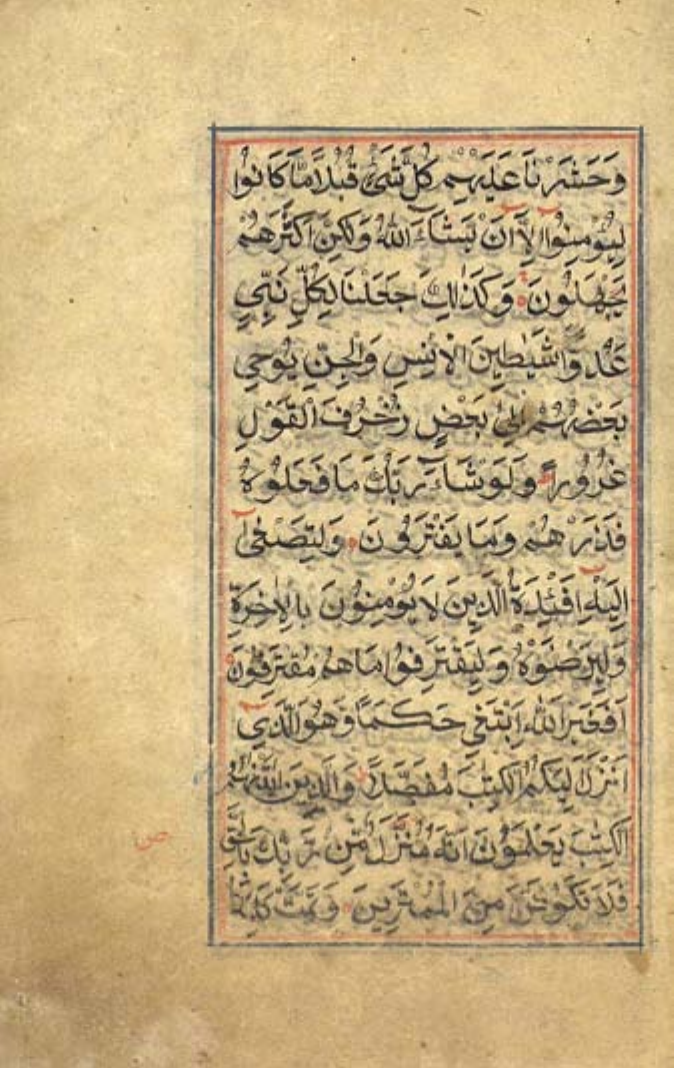 وَحَشَرْنَا عَلَيْهِمْ كُلَّ شَیْءٍ قُبُلًا مَّا كَانُوْا
لِيُؤْمِنُوْا اِلَّا اَنْ يَشَاءَ اللهُ وَلٰكِنَّ اَكْثَرَهُمْ
يَجْهَلُوْنَ وَكَذٰلِكَ جَعَلْنَا لِكُلِّ نَبِیٍّ
عَدُوًّا شَيٰطِيْنَ الْاِنْسِ وَالْجِنِّ يُوْحِی
بَعْضُهُمْ اِلٰی بَعْضٍ زُخْرُفَ الْقَوْلِ
غُرُوْرًا وَلَوْ شَاءَ رَبُّكَ مَا فَعَلُوْهُ
فَذَرْهُمْ وَمَا يَفْتَرُوْنَ وَلِتَصْغٰی
اِلَيْهِ اَفْئِدَةُ الَّذِيْنَ لَا يُؤْمِنُوْنَ بِالْاٰخِرَةِ
وَلِيَرْضَوْهُ وَلِيَقْتَرِفُوْا مَا هُمْ مُقْتَرِفُوْنَ
اَفَغَيْرَ اللهِ اَبْتَغِی حَكَمًا وَهُوَ الَّذِی
اَنْزَلَ اِلَيْكُمُ الْكِتٰبَ مُفَصَّلًا وَالَّذِيْنَ اٰتَيْنٰهُمُ
الْكِتٰبَ يَعْلَمُوْنَ اَنَّهُ مُنَزَّلٌ مِّنْ رَّبِّكَ بِالْحَقِّ
فَلَا تَكُوْنَنَّ مِنَ الْمُمْتَرِيْنَ وَتَمَّتْ كَلِمَةُ
ص